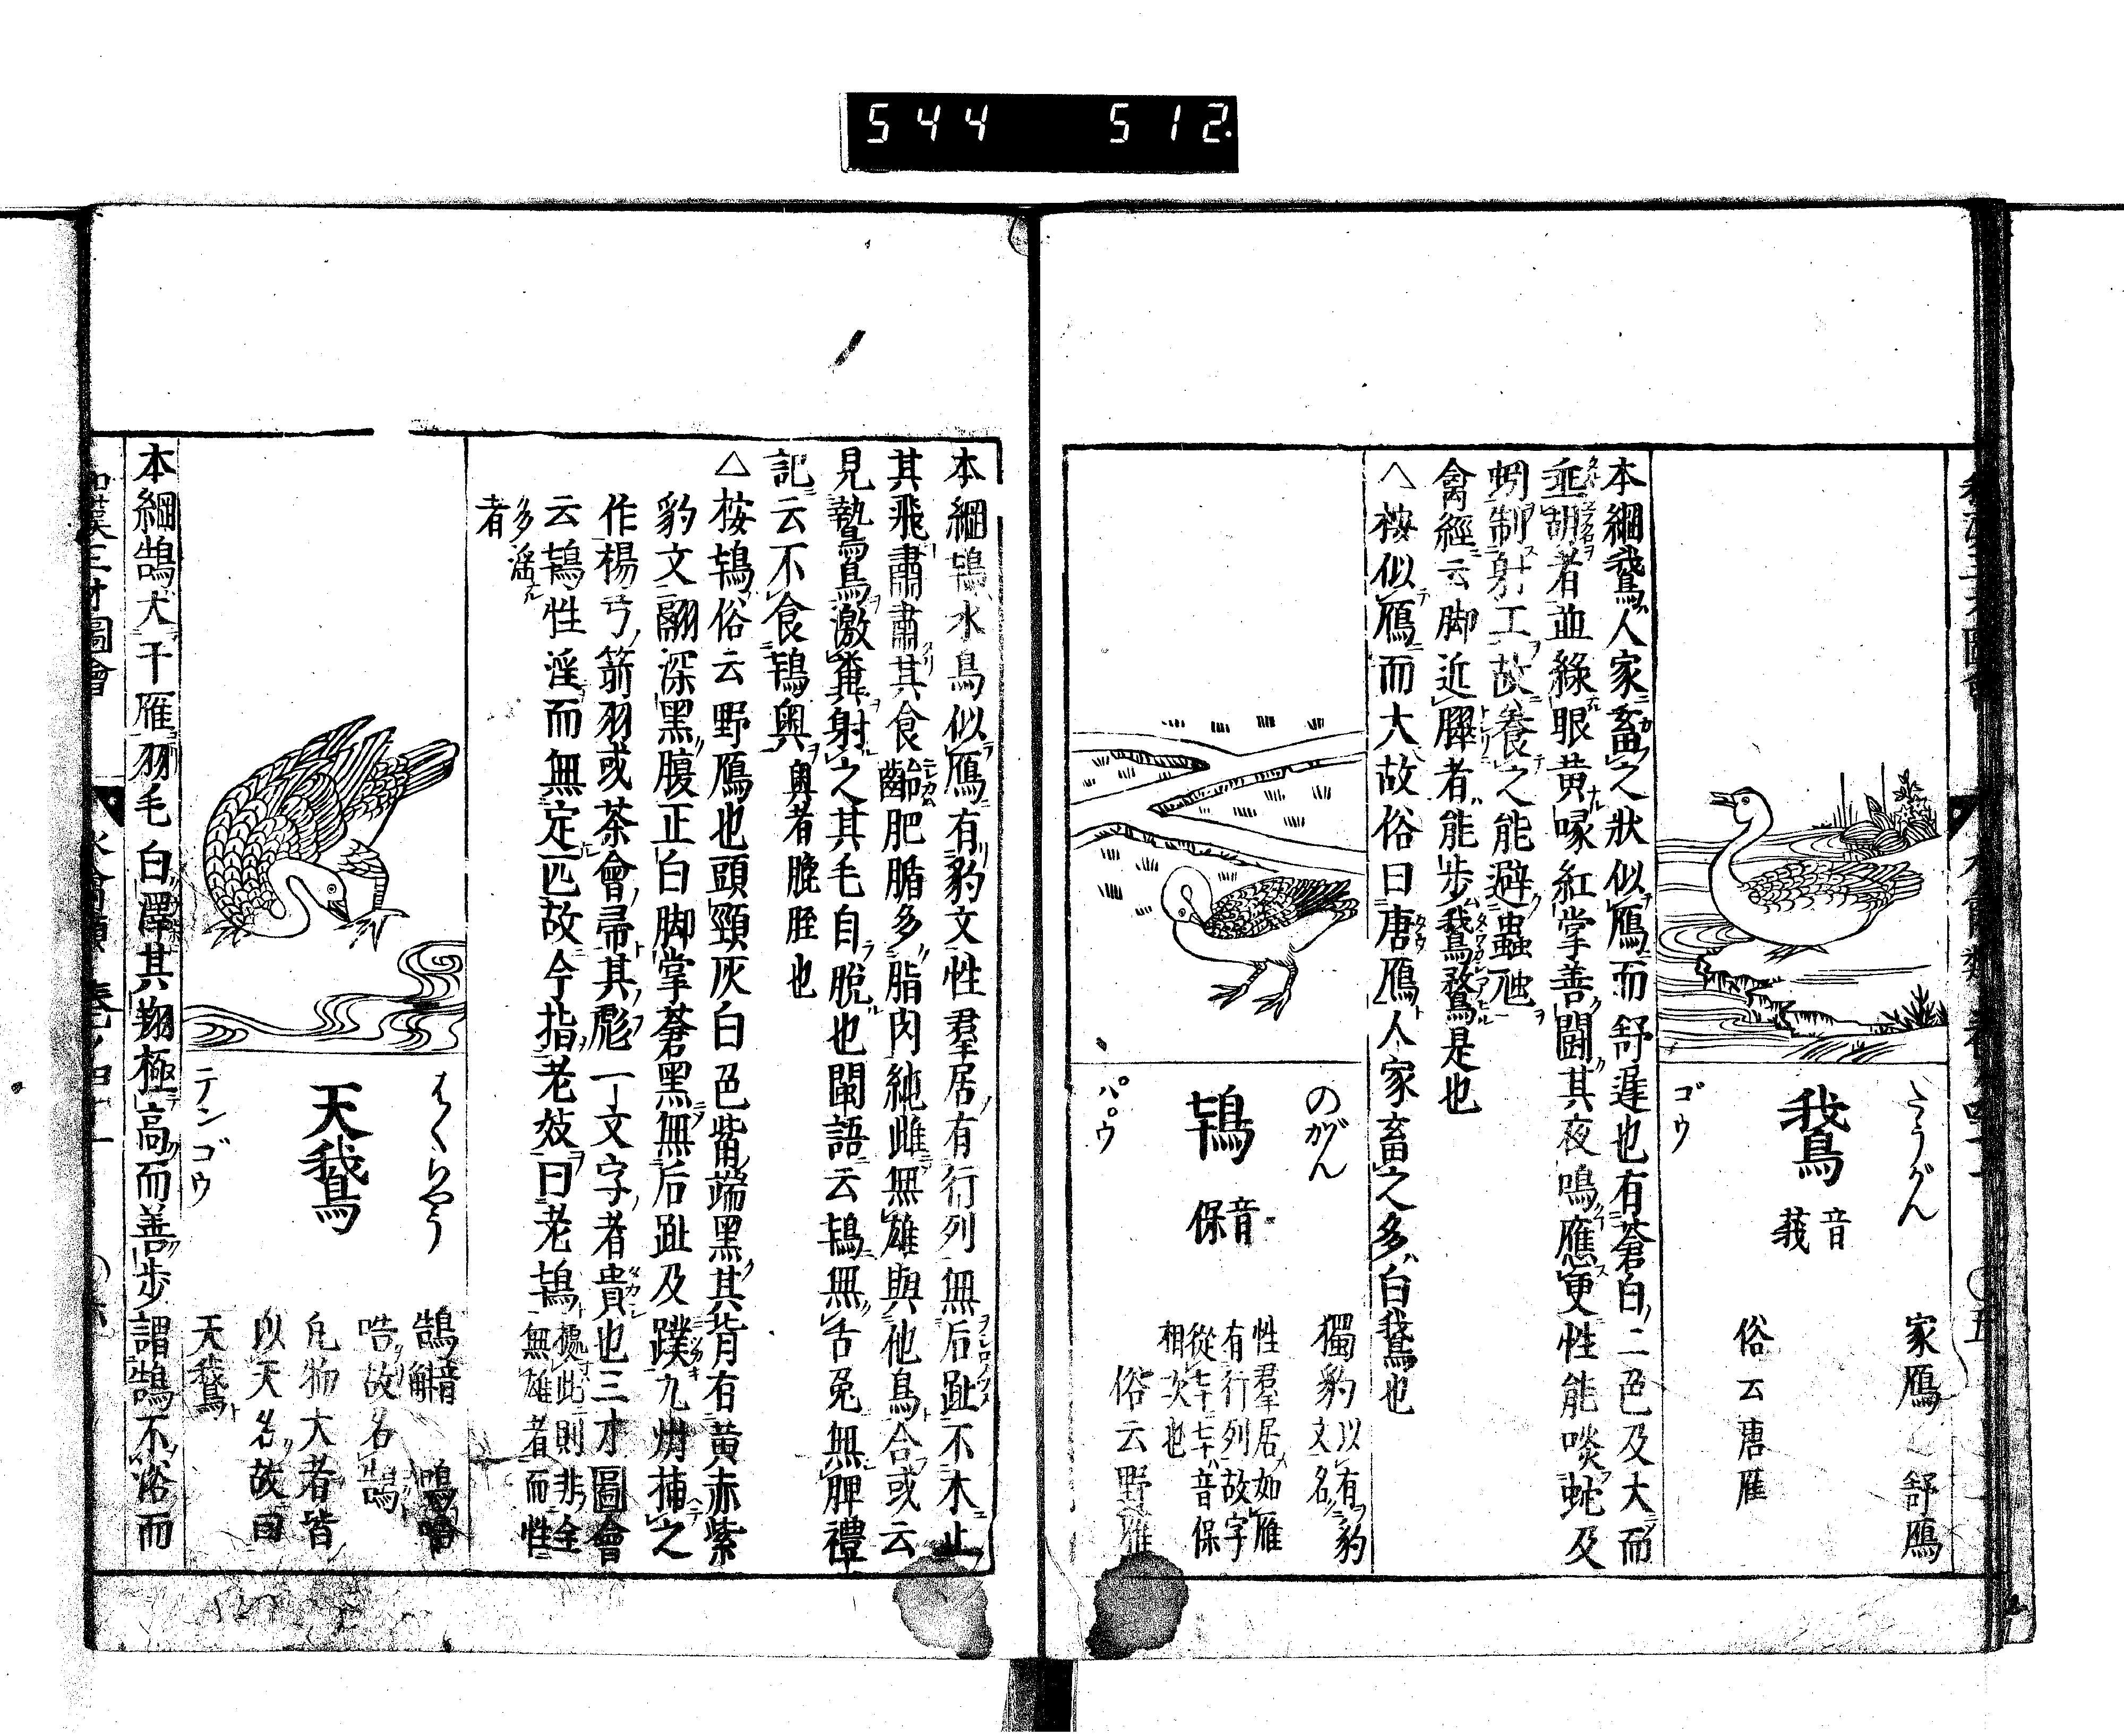 544 512
たうがん
鵞
音莪
ゴウ
家鴈
舒鴈
俗云唐雁
本綱鵞人家畜之狀似鴈而舒遲也有蒼白二色及大而
垂胡者並綠眼黄喙紅掌善鬪其夜鳴應更性能啖蛇及
蚓制射工故養之能避蟲虺
禽經云脚近臎者能步鵞鶩是也
△按似鴈而大故俗曰唐鴈人家畜之多白鵞也
のがん
鴇
音保
パ゚ウ
獨豹以有豹文名
性羣居如雁
有行列故字
從𠤏𠤏音保
相次也
俗云野雁
本綱鴇水鳥似鴈有豹文性羣居有行列無后趾不木止
其飛肅肅其食齝肥腯多脂肉純雌無雄與他鳥合或云
見鷙鳥激糞射之其毛自脫也閩語云鴇無舌兔無脾禮
記云不食鴇奥奥者脾胵也
△按鴇俗云野鴈也頭頸灰白色觜端黑其背有黄赤紫
豹文翮深黑腹正白脚掌蒼黑無后趾及蹼九州捕之
作楊弓箭羽或茶會帚其彪一丁文字者貴也三才圖會
云鴇性淫而無定匹故今指老妓曰老鴇據此則非全無雄者而性
多淫者
はくちやう
天鵞
テンゴウ
鵠音斛鵠鳴晧
晧故名鵠
凡物大者皆
以天名故曰
天鵞
本綱鵠大于雁羽毛白澤其翔極高而善步謂鵠不浴而
和漢三才圖會
水禽類